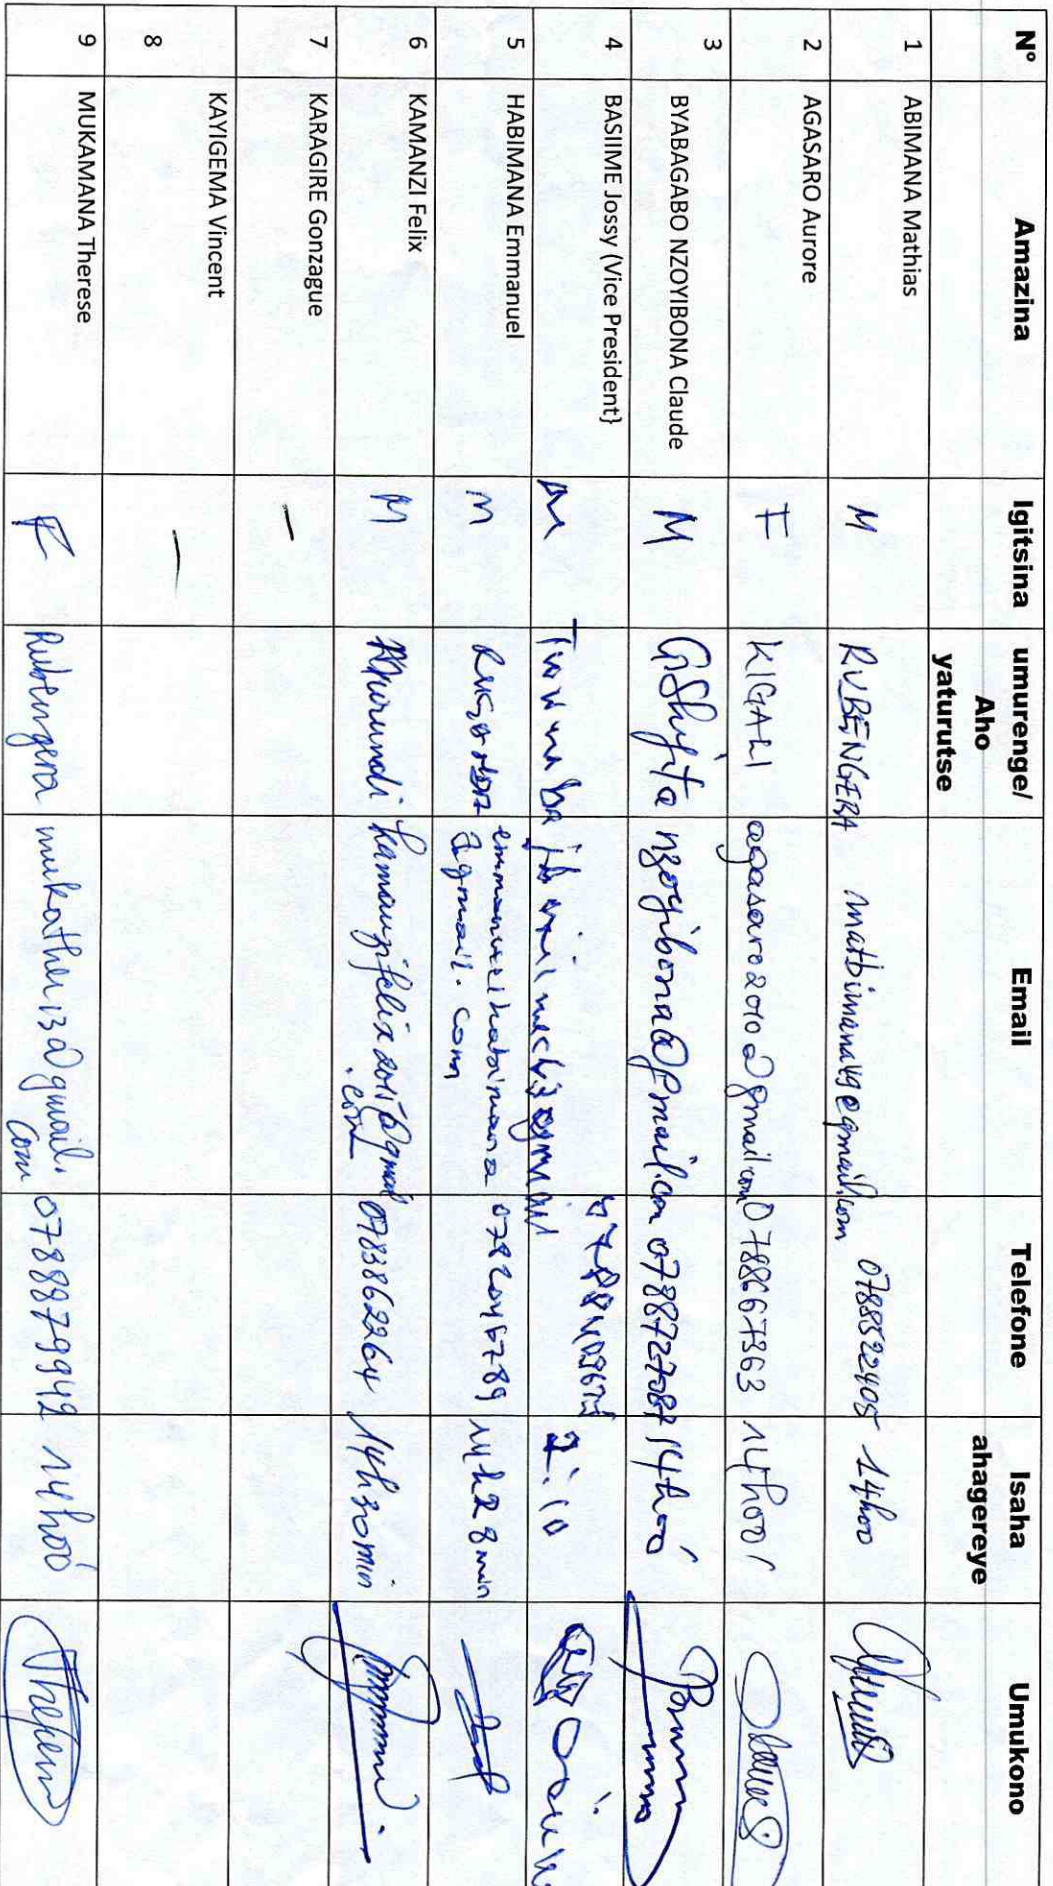 N° Amazina Igitsina umurenge/ Aho yaturutse Email Telefone Isaha ahagereye Umukono
1 ABIMANA Mathias M RUBENGERA matbimana49@gmail.com 0788522405 14h00
2 AGASARO Aurore F KIGALI agasaro2010@gmail.com 0788667363 14h00
3 BYABAGABO NZOYIBONA Claude M GiShyita nzoyibona@gmail.com 0788727087 14h00
4 BASIIME Jossy (Vice President} M 2:10
5 HABIMANA Emmanuel M emmanuelhabimana 14h28min
@gmail.com
6 KAMANZI Felix M kamanzifelix2015@gmail 0783862264 14h30min
.com
7 KARAGIRE Gonzague –
8 KAYIGEMA Vincent –
9 MUKAMANA Therese F Rubengera mukather13@gmail. 0788879942 14h00
com